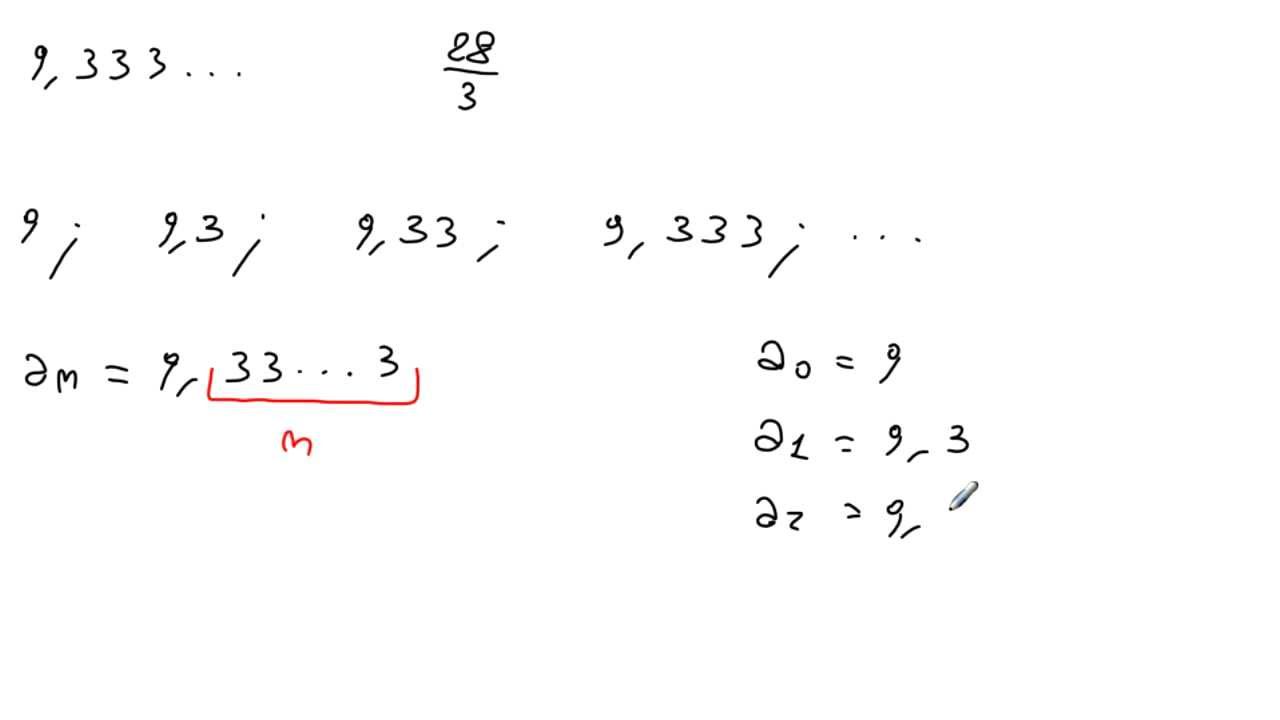 9,333... 28/3
9; 9,3; 9,33; 9,333; ...
an = 9,33...3
n
a0 = 9
a1 = 9,3
a2 = 9,